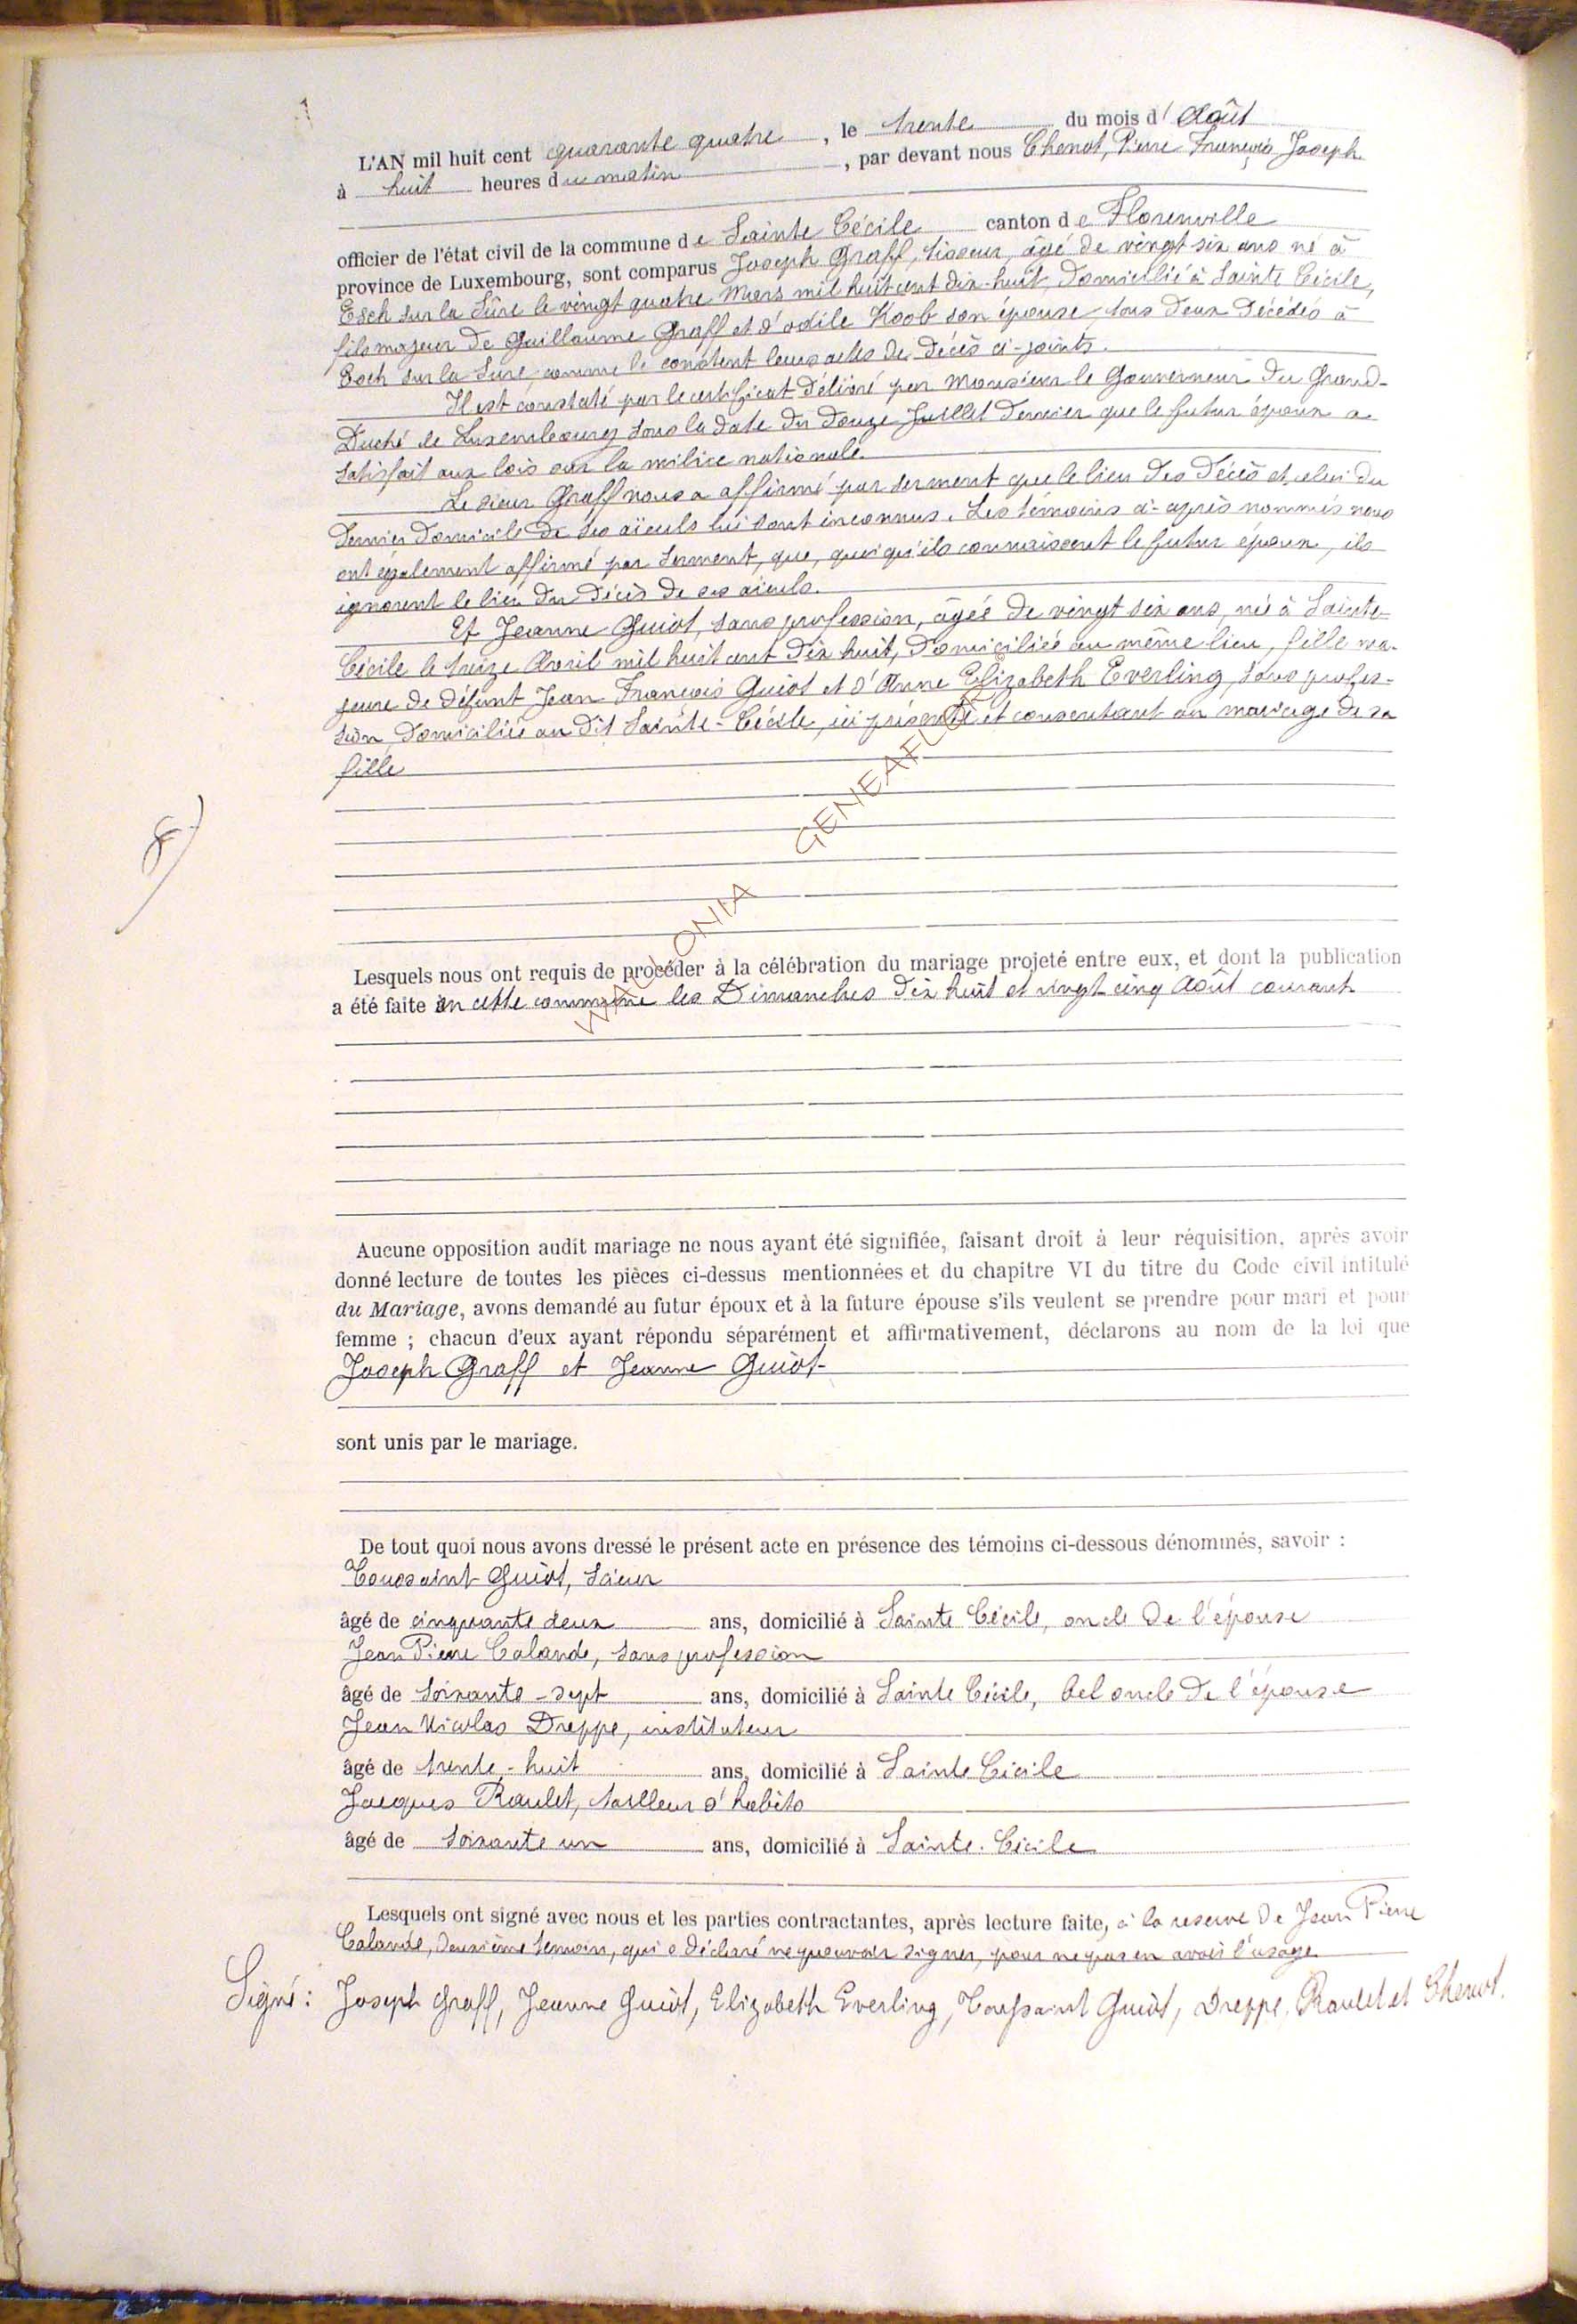 L'AN mil huit cent quarante quatre, le trente du mois d'Août
à huit heures du matin, par devant nous Chenot, Pierre François Joseph
officier de l'état civil de la commune de Sainte Cécile canton de Florenville
province de Luxembourg, sont comparus Joseph Graff, tisseur, âgé de vingt six ans né à
Esch sur la Sûre le vingt quatre Mars mil huit cent dix-huit, domicilié à Sainte Cécile,
fils majeur de Guillaume Graff et d'odile Koob son épouse, tous deux décédés à
Esch sur la Sûre, comme le constent leurs actes de décès ci-joints.
Il est constaté par le certificat délivré par Monsieur le Gouverneur du Grand-
Duché de Luxembourg sous la date du douze Juillet dernier que le futur époux a
satisfait aux lois sur la milice nationale.
Le sieur Graff nous a affirmé par serment que le lieu des décès et celui du
dernier domicile de ses aïeuls lui sont inconnus. Les témoins ci-après nommés nous
ont également affirmé par serment, que, quoiqu'ils connaissent le futur époux, ils
ignorent le lieu du décès de ses aïeuls.
Et Jeanne Guiot, sans profession, âgée de vingt six ans, née à Sainte-
Cécile le treize Avril mil huit cent dix huit, domiciliée au même lieu, fille ma-
jeure de défunt Jean François Guiot et d'Anne Elizabeth Everling, sans profes-
sion, domiciliée au dit Sainte-Cécile, ici présente et consentant au mariage de sa
fille
8)
WALLONIA GENEAFLORE
Lesquels nous ont requis de procéder à la célébration du mariage projeté entre eux, et dont la publication
a été faite en cette commune les Dimanches dix huit et vingt cinq Août courant
Aucune opposition audit mariage ne nous ayant été signifiée, faisant droit à leur réquisition, après avoir
donné lecture de toutes les pièces ci-dessus mentionnées et du chapitre VI du titre du Code civil intitulé
du Mariage, avons demandé au futur époux et à la future épouse s'ils veulent se prendre pour mari et pour
femme ; chacun d'eux ayant répondu séparément et affirmativement, déclarons au nom de la loi que
Joseph Graff et Jeanne Guiot
sont unis par le mariage.
De tout quoi nous avons dressé le présent acte en présence des témoins ci-dessous dénommés, savoir :
Toussaint Guiot, scieur
âgé de cinquante deux ans, domicilié à Sainte Cécile, oncle de l'épouse
Jean Pierre Calande, sans profession
âgé de soixante-sept ans, domicilié à Sainte Cécile, bel oncle de l'épouse
Jean Nicolas Dreppe, instituteur
âgé de trente-huit ans, domicilié à Sainte Cécile
Jacques Raulet, tailleur d'habits
âgé de soixante un ans, domicilié à Sainte-Cécile
Lesquels ont signé avec nous et les parties contractantes, après lecture faite, à la reserve de Jean Pierre
Calande, deuxième temoin, qui a déclaré ne pouvoir signer, pour ne pas en avoir l'usage
Signé : Joseph Graff, Jeanne Guiot, Elizabeth Everling, Toussaint Guiot, Dreppe, Raulet et Chenot.